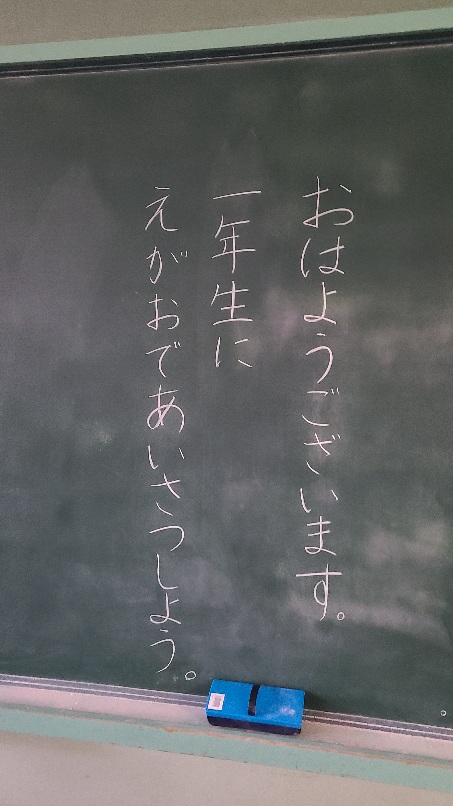 おはようございます。
一年生に
えがおであいさつしよう。